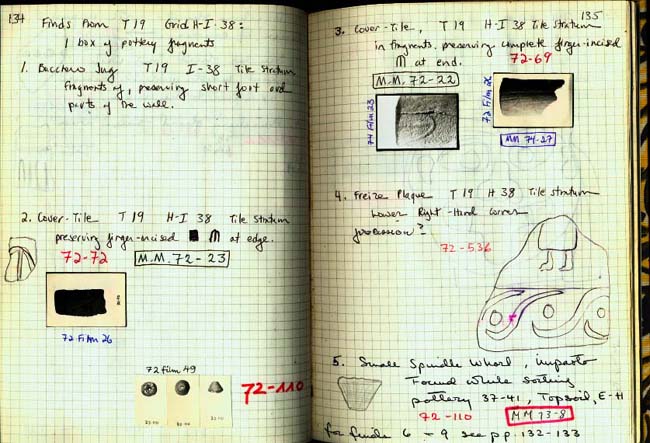 134
Finds from T 19 Grid H-I 38:
1 box of pottery fragments
1. Bucchero Jug T 19 I-38 Tile Stratum
fragments of, preserving short foot and
parts of the wall.
2. Cover-Tile T 19 H-I 38 Tile Stratum
preserving finger-incised M at edge.
72-72
M.M. 72-23
72 Film 26
72 film 49
72-110
135
3. Cover-Tile, T 19 H-I 38 Tile Stratum
in fragments, preserving complete finger-incised
M at end.
72-69
M.M. 72-22
74 Film 23
72 Film 26
MM 74-27
4. Freize Plaque T 19 H 38 Tile Stratum
Lower Right-Hand Corner
procession?
72-536
5. Small Spindle Whorl, impasto
Found while sorting
pottery 37-41, Topsoil, E-H
72-110
MM 73-8
for finds 6-9 see pp. 132-133